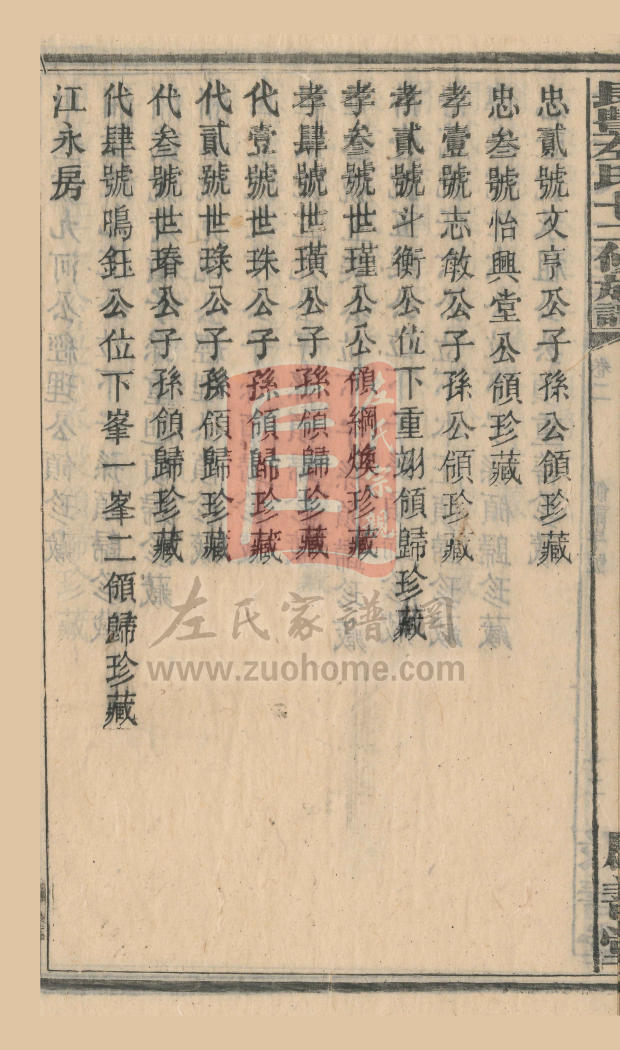 忠貳號文亨公子孫公領珍藏
忠叁號怡興堂公領珍藏
孝壹號志敏公子孫公領珍藏
孝貳號斗衡公位下重翊領歸珍藏
孝叁號世瑾公公領綱煥珍藏
孝肆號世璜公子孫領歸珍藏
代壹號世珠公子孫領歸珍藏
代貳號世琭公子孫領歸珍藏
代叁號世瑃公子孫領歸珍藏
代肆號鳴鈺公位下峯一峯二領歸珍藏
江永房
卷二
左氏家譜网
www.zuohome.com